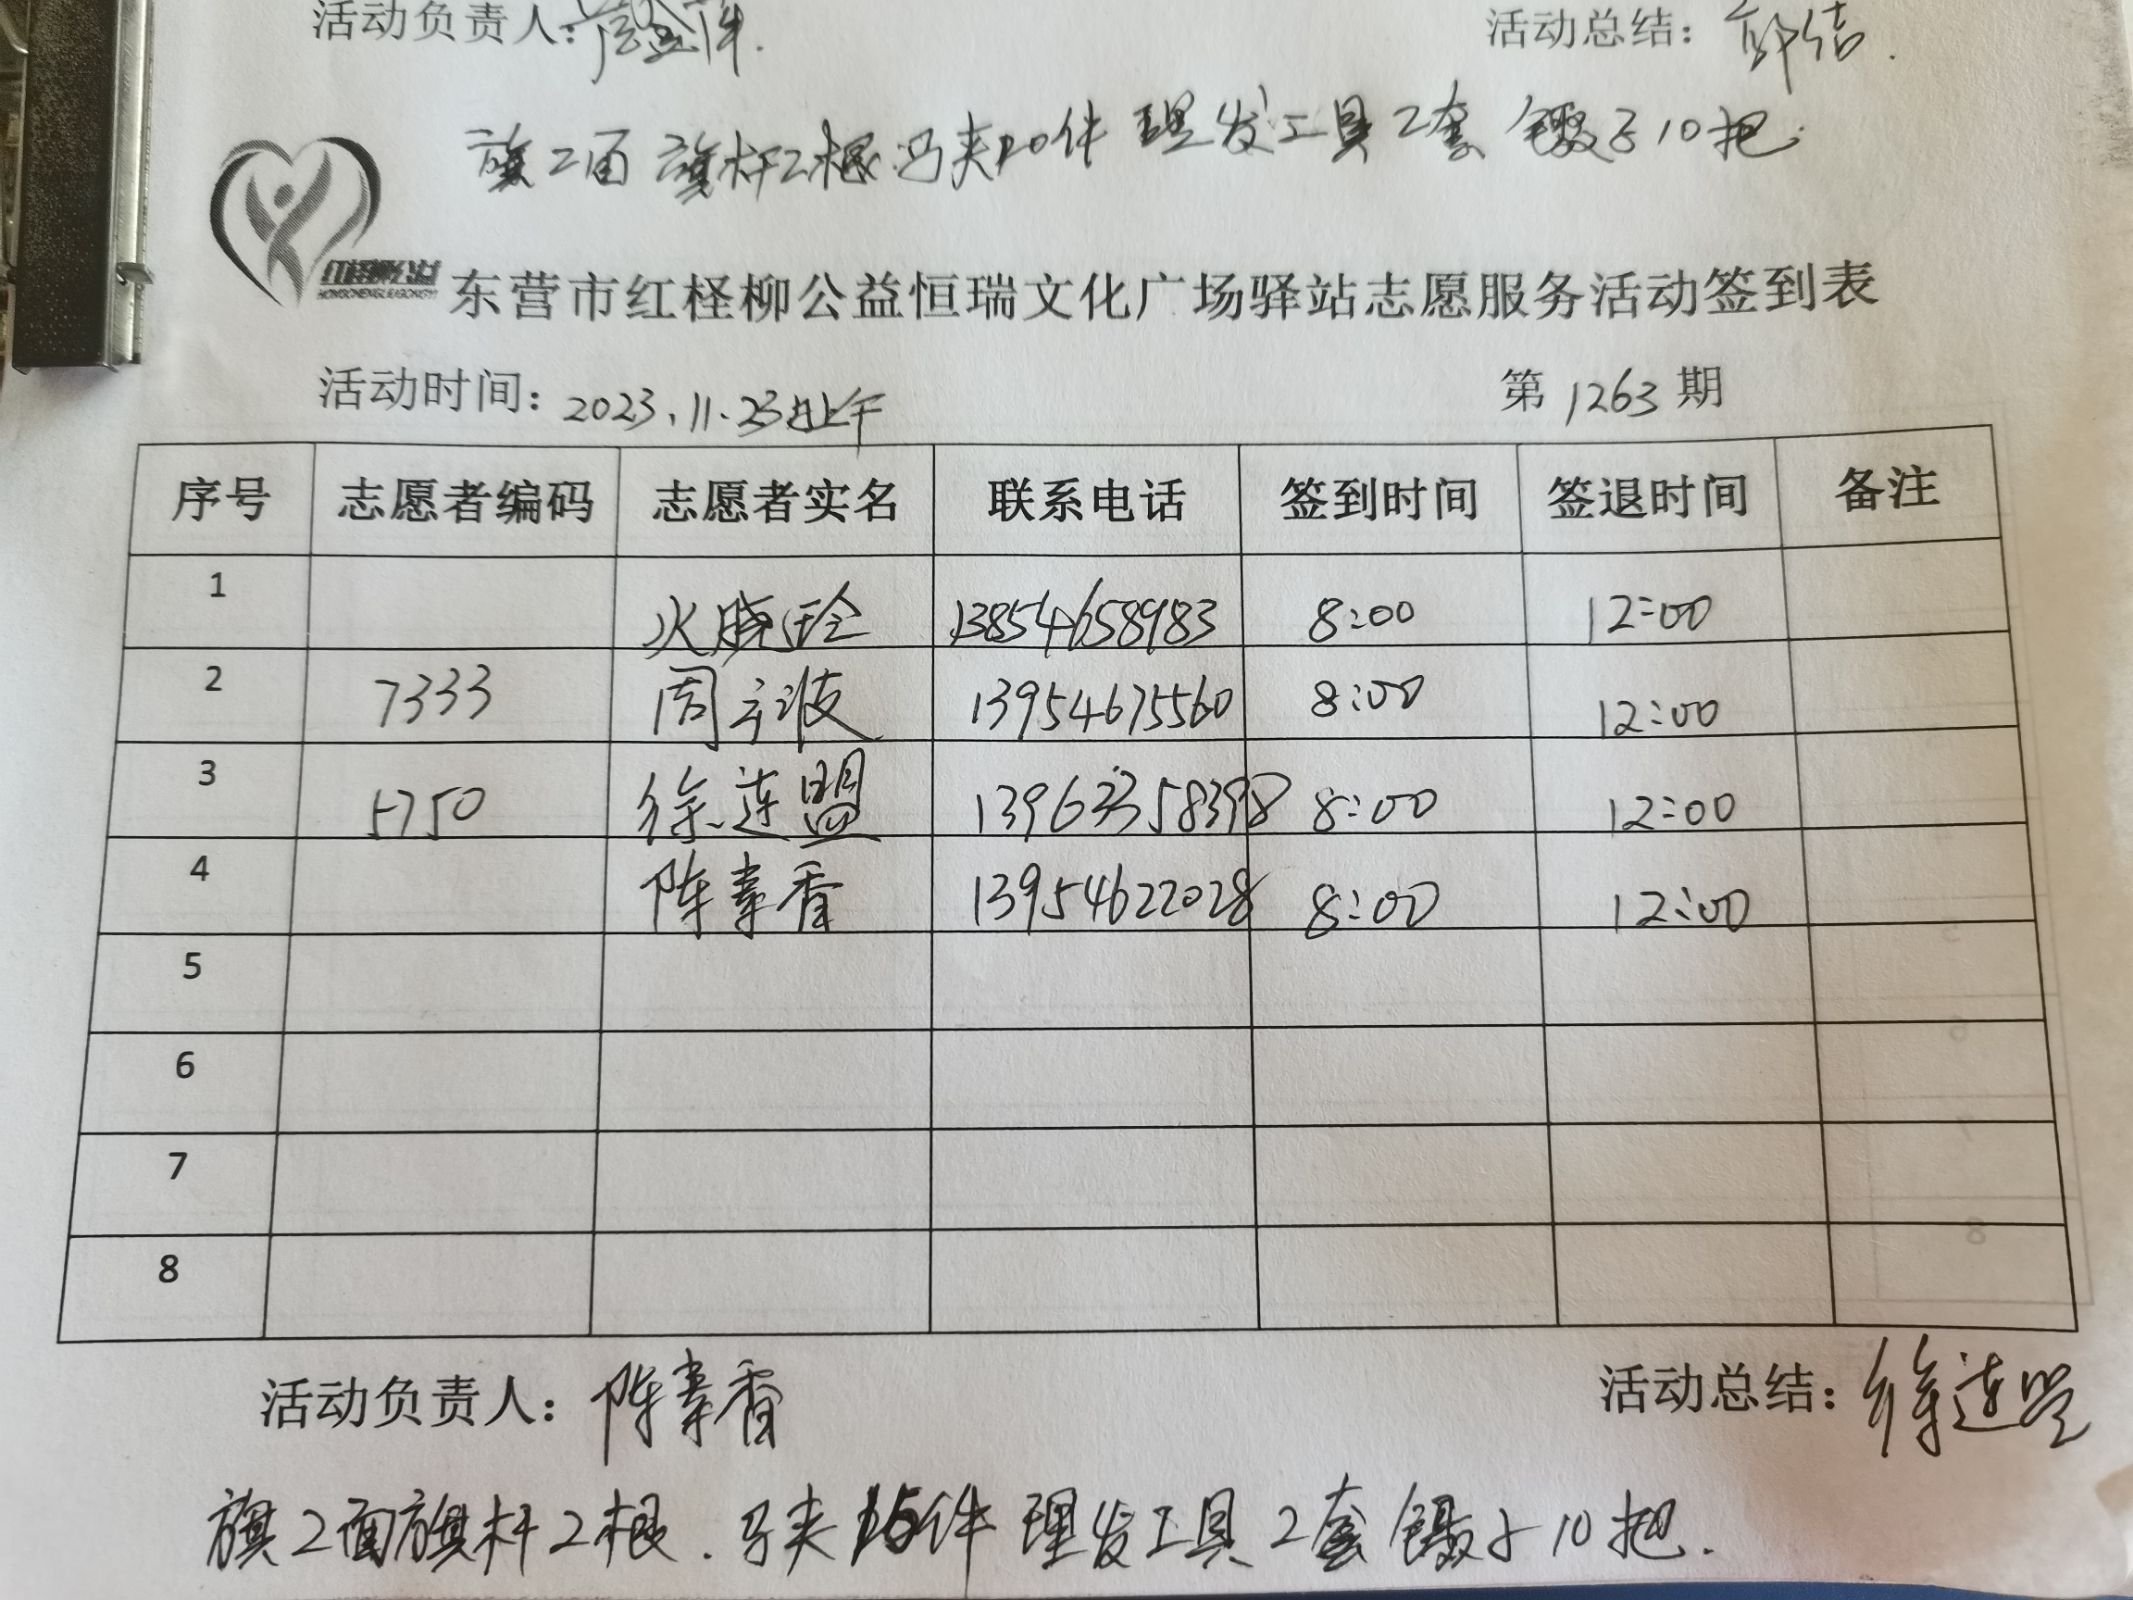 活动负责人：
活动总结：
旗2面 旗杆2根 马夹20件 理发工具2套 镊子10把.
东营市红柽柳公益恒瑞文化广场驿站志愿服务活动签到表
活动时间：2023.11.23上午 第1263期
序号 志愿者编码 志愿者实名 联系电话 签到时间 签退时间 备注
1 13854658983 8:00 12:00
2 7333 周立波 13954675560 8:00 12:00
3 5750 徐连盟 8:00 12:00
4 陈素香 13954622028 8:00 12:00
5
6
7
8
活动负责人：陈素香 活动总结：徐连盟
旗2面旗杆2根.马夹15件 理发工具2套 镊子10把.